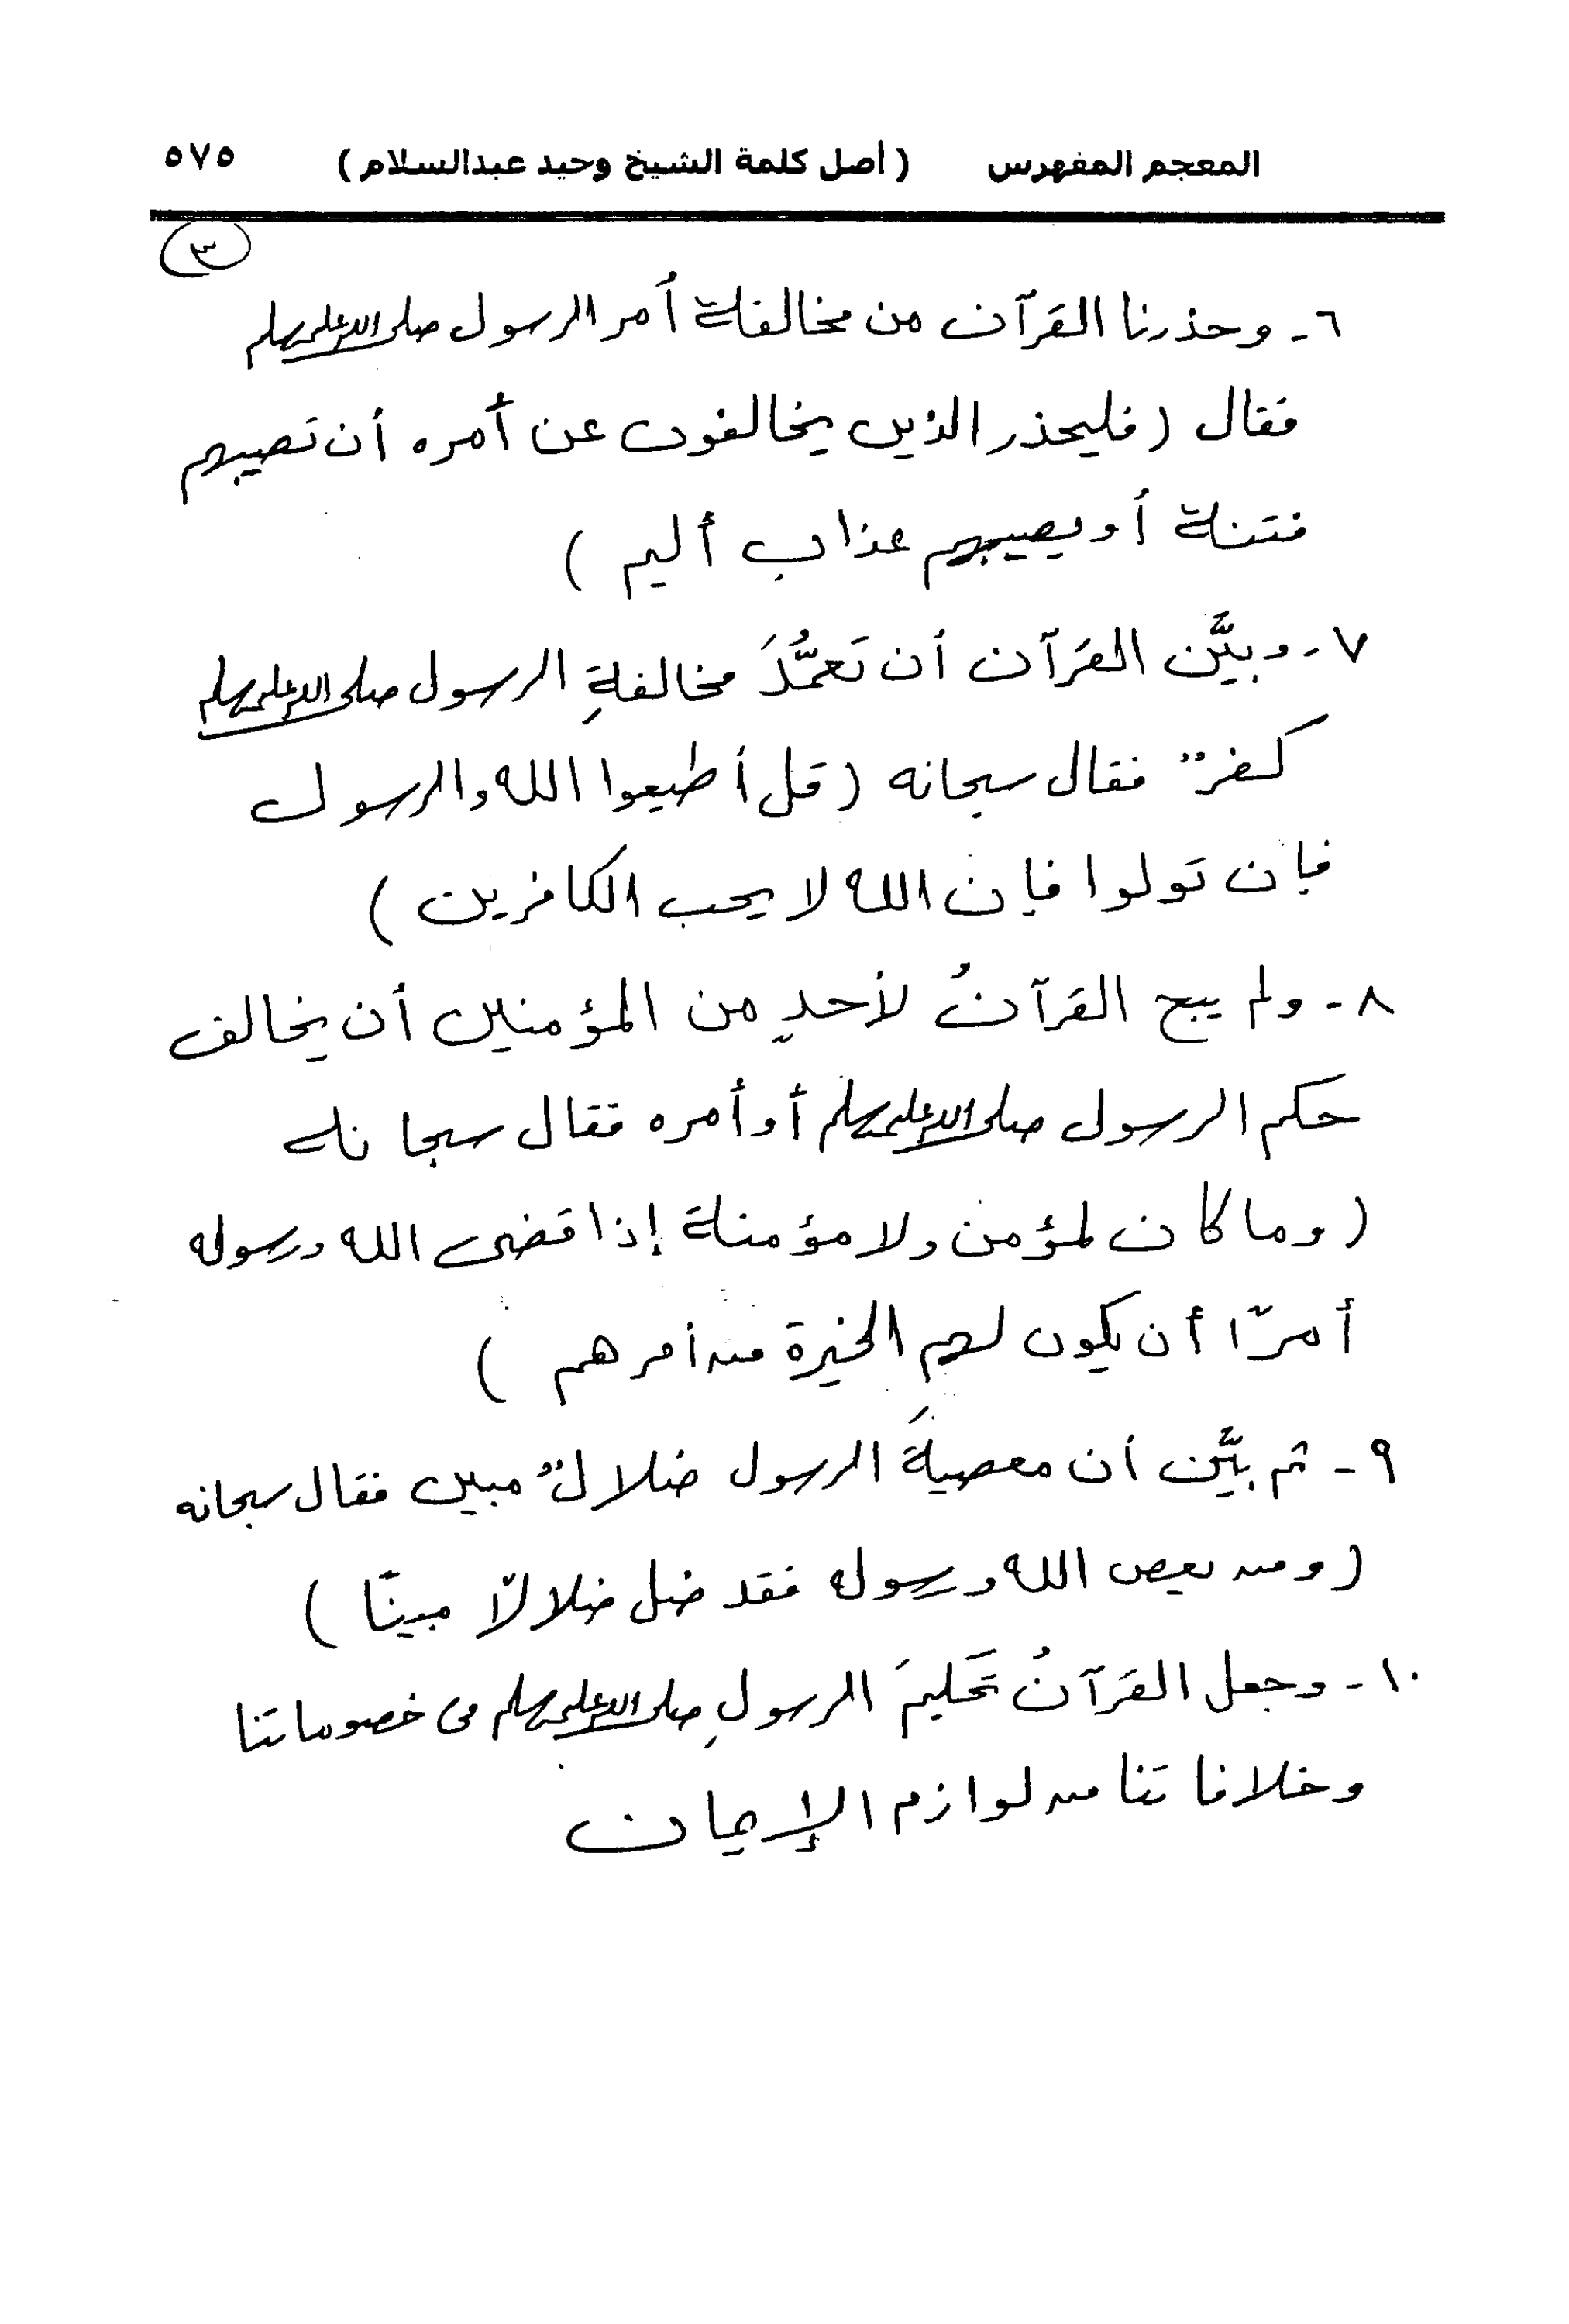 المعجم المفهرس (أصل كلمة الشيخ وحيد عبدالسلام) ٥٧٥
٣
٦- وحذرنا القرآن من مخالفة أمر الرسول صلى الله عليه وسلم
فقال (فليحذر الذين يخالفون عن أمره أن تصيبهم
فتنة أو يصيبهم عذاب أليم)
٧- وبيَّن القرآن أن تَعمُّدَ مخالفةِ الرسول صلى الله عليه وسلم
كفرٌ فقال سبحانه (قل أطيعوا الله والرسول
فإن تولوا فإن الله لا يحب الكافرين)
٨- ولم يبح القرآنُ لأحدٍ من المؤمنين أن يخالف
حكم الرسول صلى الله عليه وسلم أو أمره فقال سبحانه
(وما كان لمؤمن ولا مؤمنة إذا قضى الله ورسوله
أمرًا أن يكون لهم الخيرة من أمرهم)
٩- ثم بيَّن أن معصيةَ الرسول ضلالٌ مبين فقال سبحانه
(ومن يعص الله ورسوله فقد ضل ضلالًا مبينًا)
١٠- وجعل القرآنُ تَحكيمَ الرسولِ صلى الله عليه وسلم في خصوماتنا
وخلافاتنا من لوازم الإيمان